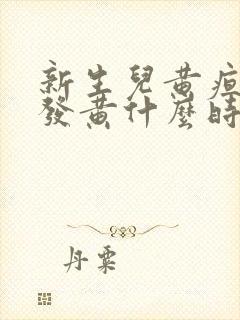 新生兒黄疸
發黄什麼時
丹粟